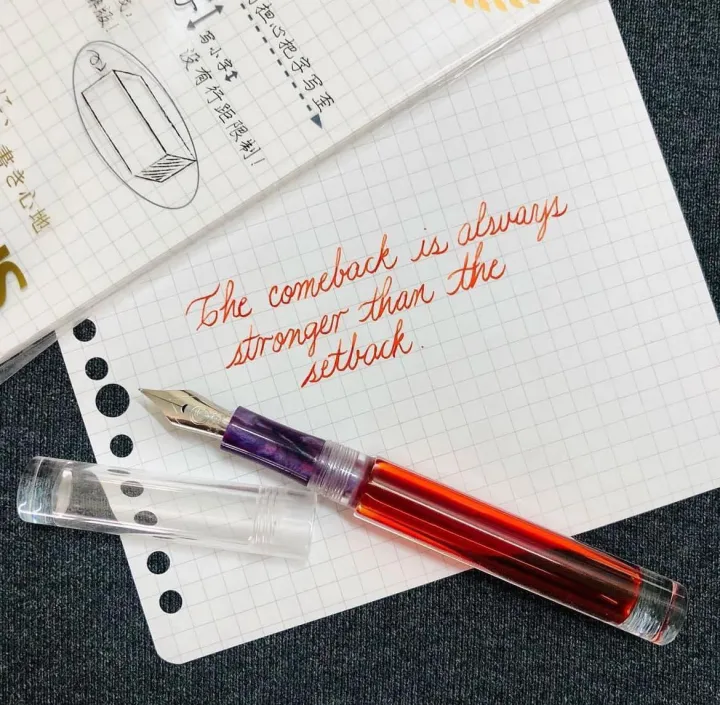 写小字
没有行距限制!
担心把字写歪
書き心地
The comeback is always
stronger than the
setback.